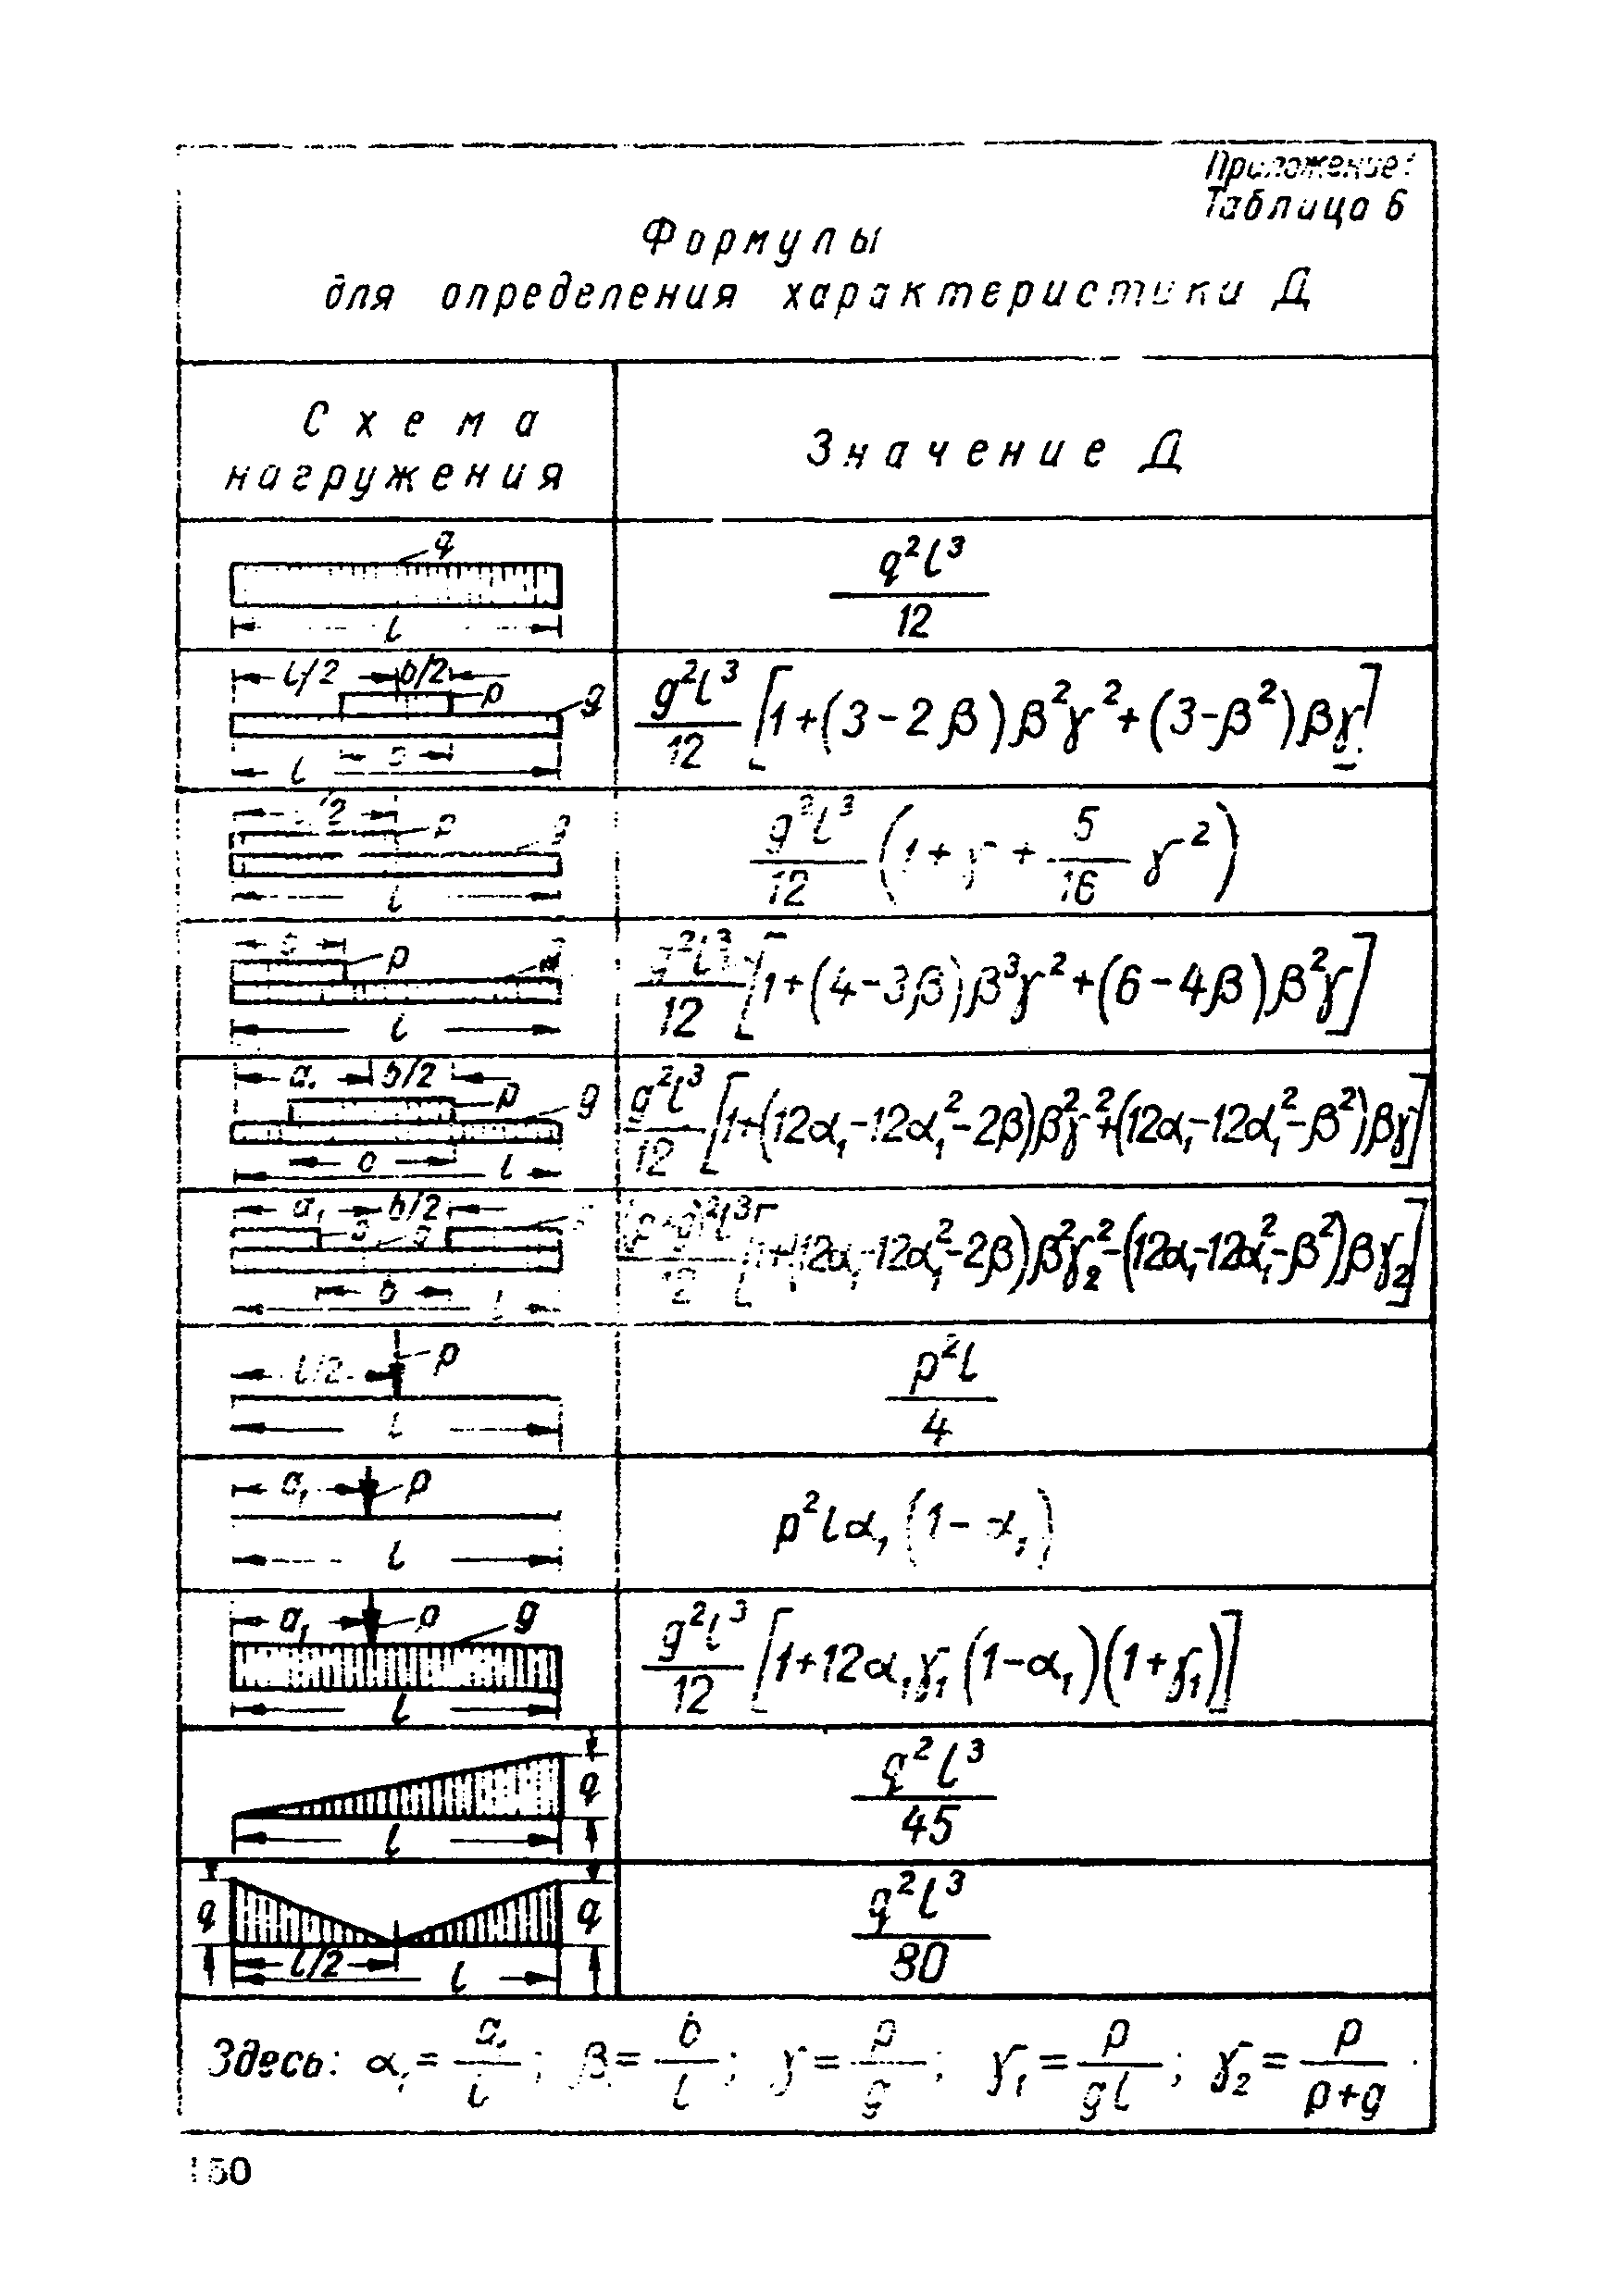 Приложение
Таблица 6
Формулы
для определения характеристики Д
Схема
нагружения
Значение Д
q
l
q²l³/12
l/2 b/2
p g
b
l
g²l³/12 [1+(3-2β)β²γ²+(3-β²)βγ]
/2
p g
l
g²l³/12 (1+γ+5/16 γ²)
p
l
g²l³/12 [1+(4-3β)β³γ²+(6-4β)β²γ]
a₁ b/2
p g
l
g²l³/12 [1+(12α₁-12α₁²-2β)β²γ²+(12α₁-12α₁²-β²)βγ]
a₁ b/2
g
b
l
(p+g)²l³/12 [1+(12α₁-12α₁²-2β)β²γ₂²-(12α₁-12α₁²-β²)βγ₂]
l/2 p
l
p²l/4
a₁ p
l
p²lα₁(1-α₁)
a₁ p g
l
g²l³/12 [1+12α₁γ₁(1-α₁)(1+γ₁)]
q
l
q²l³/45
q q
l/2
l
q²l³/80
Здесь: α₁=a₁/l; β=b/l; γ=p/g; γ₁=p/gl; γ₂=p/p+g.